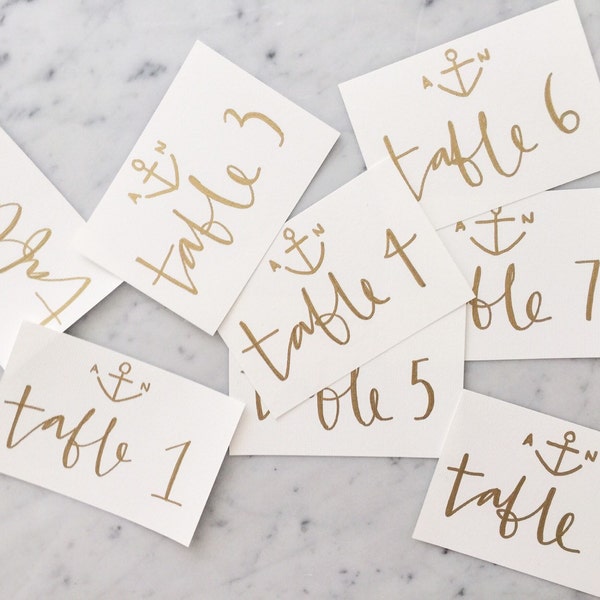 A N
table 3
A N
table 6
A N
table 4
A N
table 7
table 5
A N
table 1
A N
table